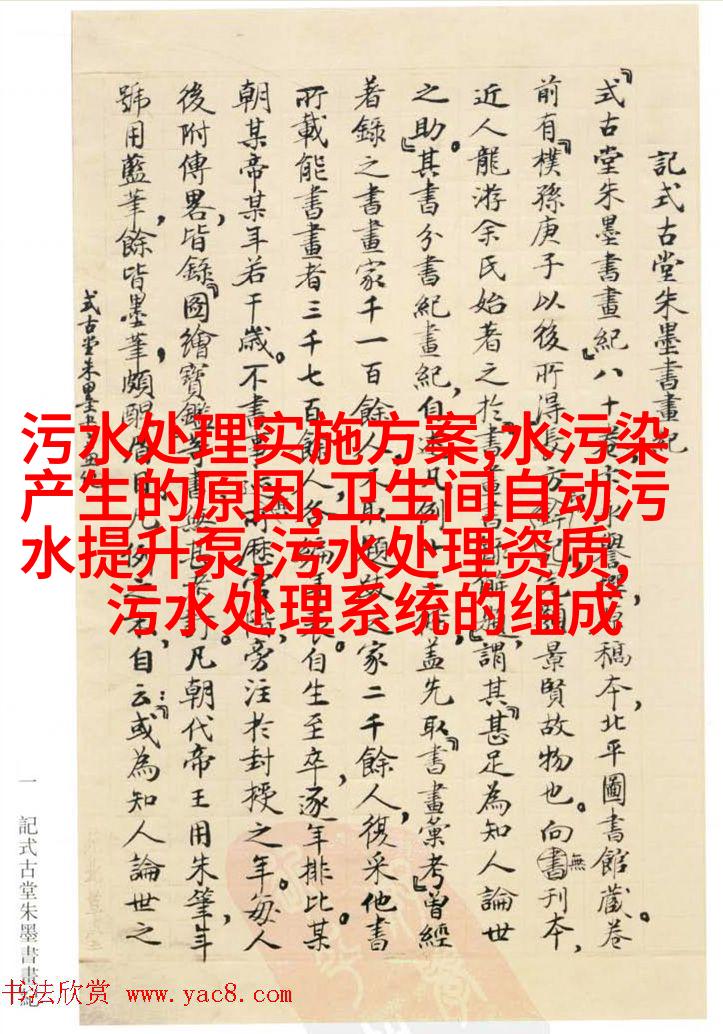 記式古堂朱墨書畫紀
『式古堂朱墨書畫紀』八十卷
稿本，北平圖書館藏。卷
前有『樸孫庚子以後所得』長方
景賢故物也。向無書刊本，
近人龍游余氏始著之於『書
謂其『甚足為知人論世
之助』。其書分書紀畫紀，自
蓋先取『書畫彙考』曾經
著錄之書畫家千一百餘人
家二千餘人，復采他書
所載能書畫者三千七百餘人
自生至卒，逐年排比某
朝某帝某年若干歲。不書事
旁注於封授之年。每人
後附傳畧，皆錄『圖繪寶鑑』等書
凡朝代帝王用朱筆，年
號用藍筆，餘皆墨筆，頗醒
自云：『或為知人論世之
式古堂朱墨書畫
一 記式古堂朱墨書畫紀
污水处理实施方案,水污染
产生的原因,卫生间自动污
水提升泵,污水处理资质,
污水处理系统的组成
书法欣赏 www.yac8.com